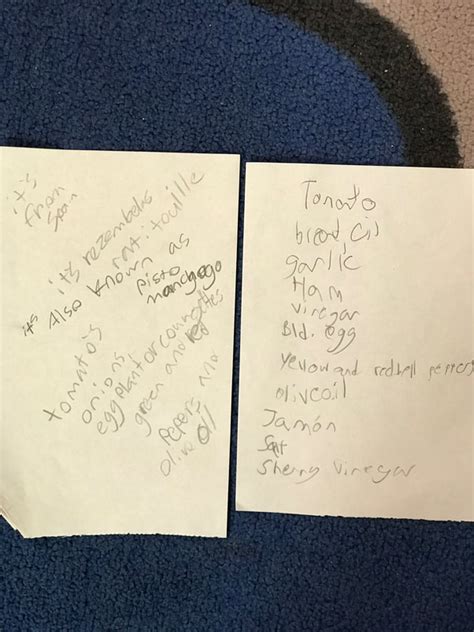 it's
From
Spain
it's rezembelas
rat. touille
it's Also known as
pisto
manchego
tomato's
onions
eggplant or courgettes
green and red
pepers and
olive oil
Tomato
bread oil
garlic
Ham
vinegar
Bld. egg
yellow and red bell peppers
olive oil
Jamón
Salt
Sherry vinegar